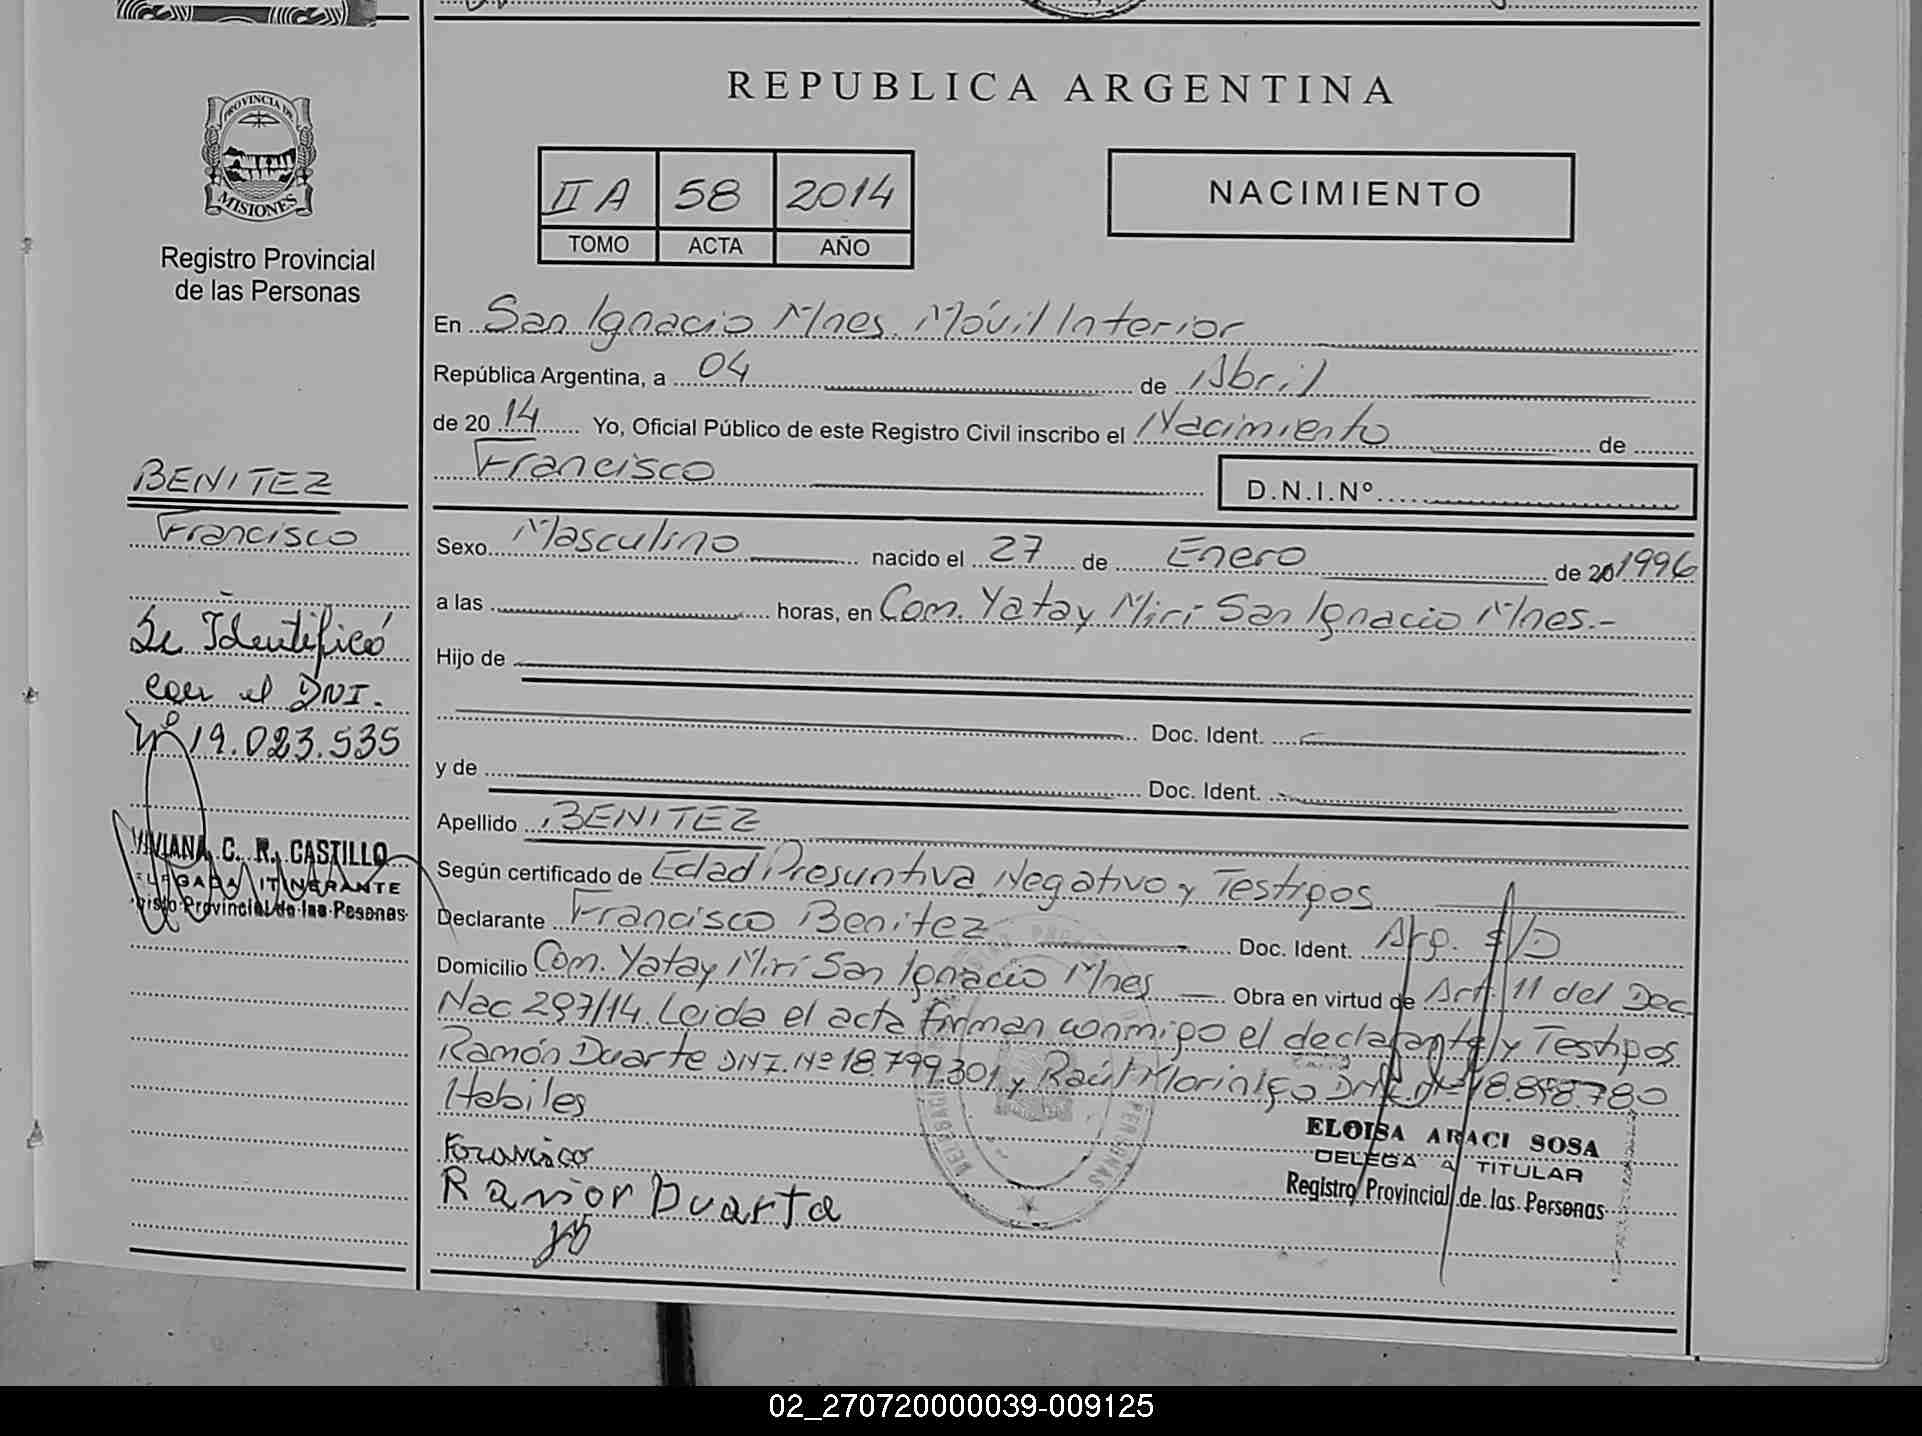 REPUBLICA ARGENTINA
PROVINCIA DE
MISIONES
Registro Provincial
de las Personas
II A 58 2014
TOMO ACTA AÑO
NACIMIENTO
En San Ignacio Mnes. Móvil Interior
República Argentina, a 04 de Abril
de 2014 Yo, Oficial Público de este Registro Civil inscribo el Nacimiento de
Francisco D.N.I.Nº
BENITEZ
Francisco
Se Identificó
con el DNI.
Nº 19.023.535
VIVIANA C. R. CASTILLO
ITINERANTE
Provincial de las Pesonas
Sexo Masculino nacido el 27 de Enero de 201996
a las horas, en Com. Yatay Miri San Ignacio Mnes.-
Hijo de
Doc. Ident.
y de Doc. Ident.
Apellido BENITEZ
Según certificado de Edad Presuntiva Negativo y Testigos
Declarante Francisco Benitez Doc. Ident. Arg. s/D
Domicilio Com. Yatay Miri San Ignacio Mnes Obra en virtud de Art. 11 del Dec.
Nac 297/14. Leida el acta firman conmigo el declarante y Testigos
Ramón Duarte DNI. Nº 18.799.301 y Raúl Morinigo DNI. Nº 18.898.780
Habiles
ELOISA ARACI SOSA
DELEGA A TITULAR
Registro Provincial de las Personas
Ramor Duarta
02_270720000039-009125